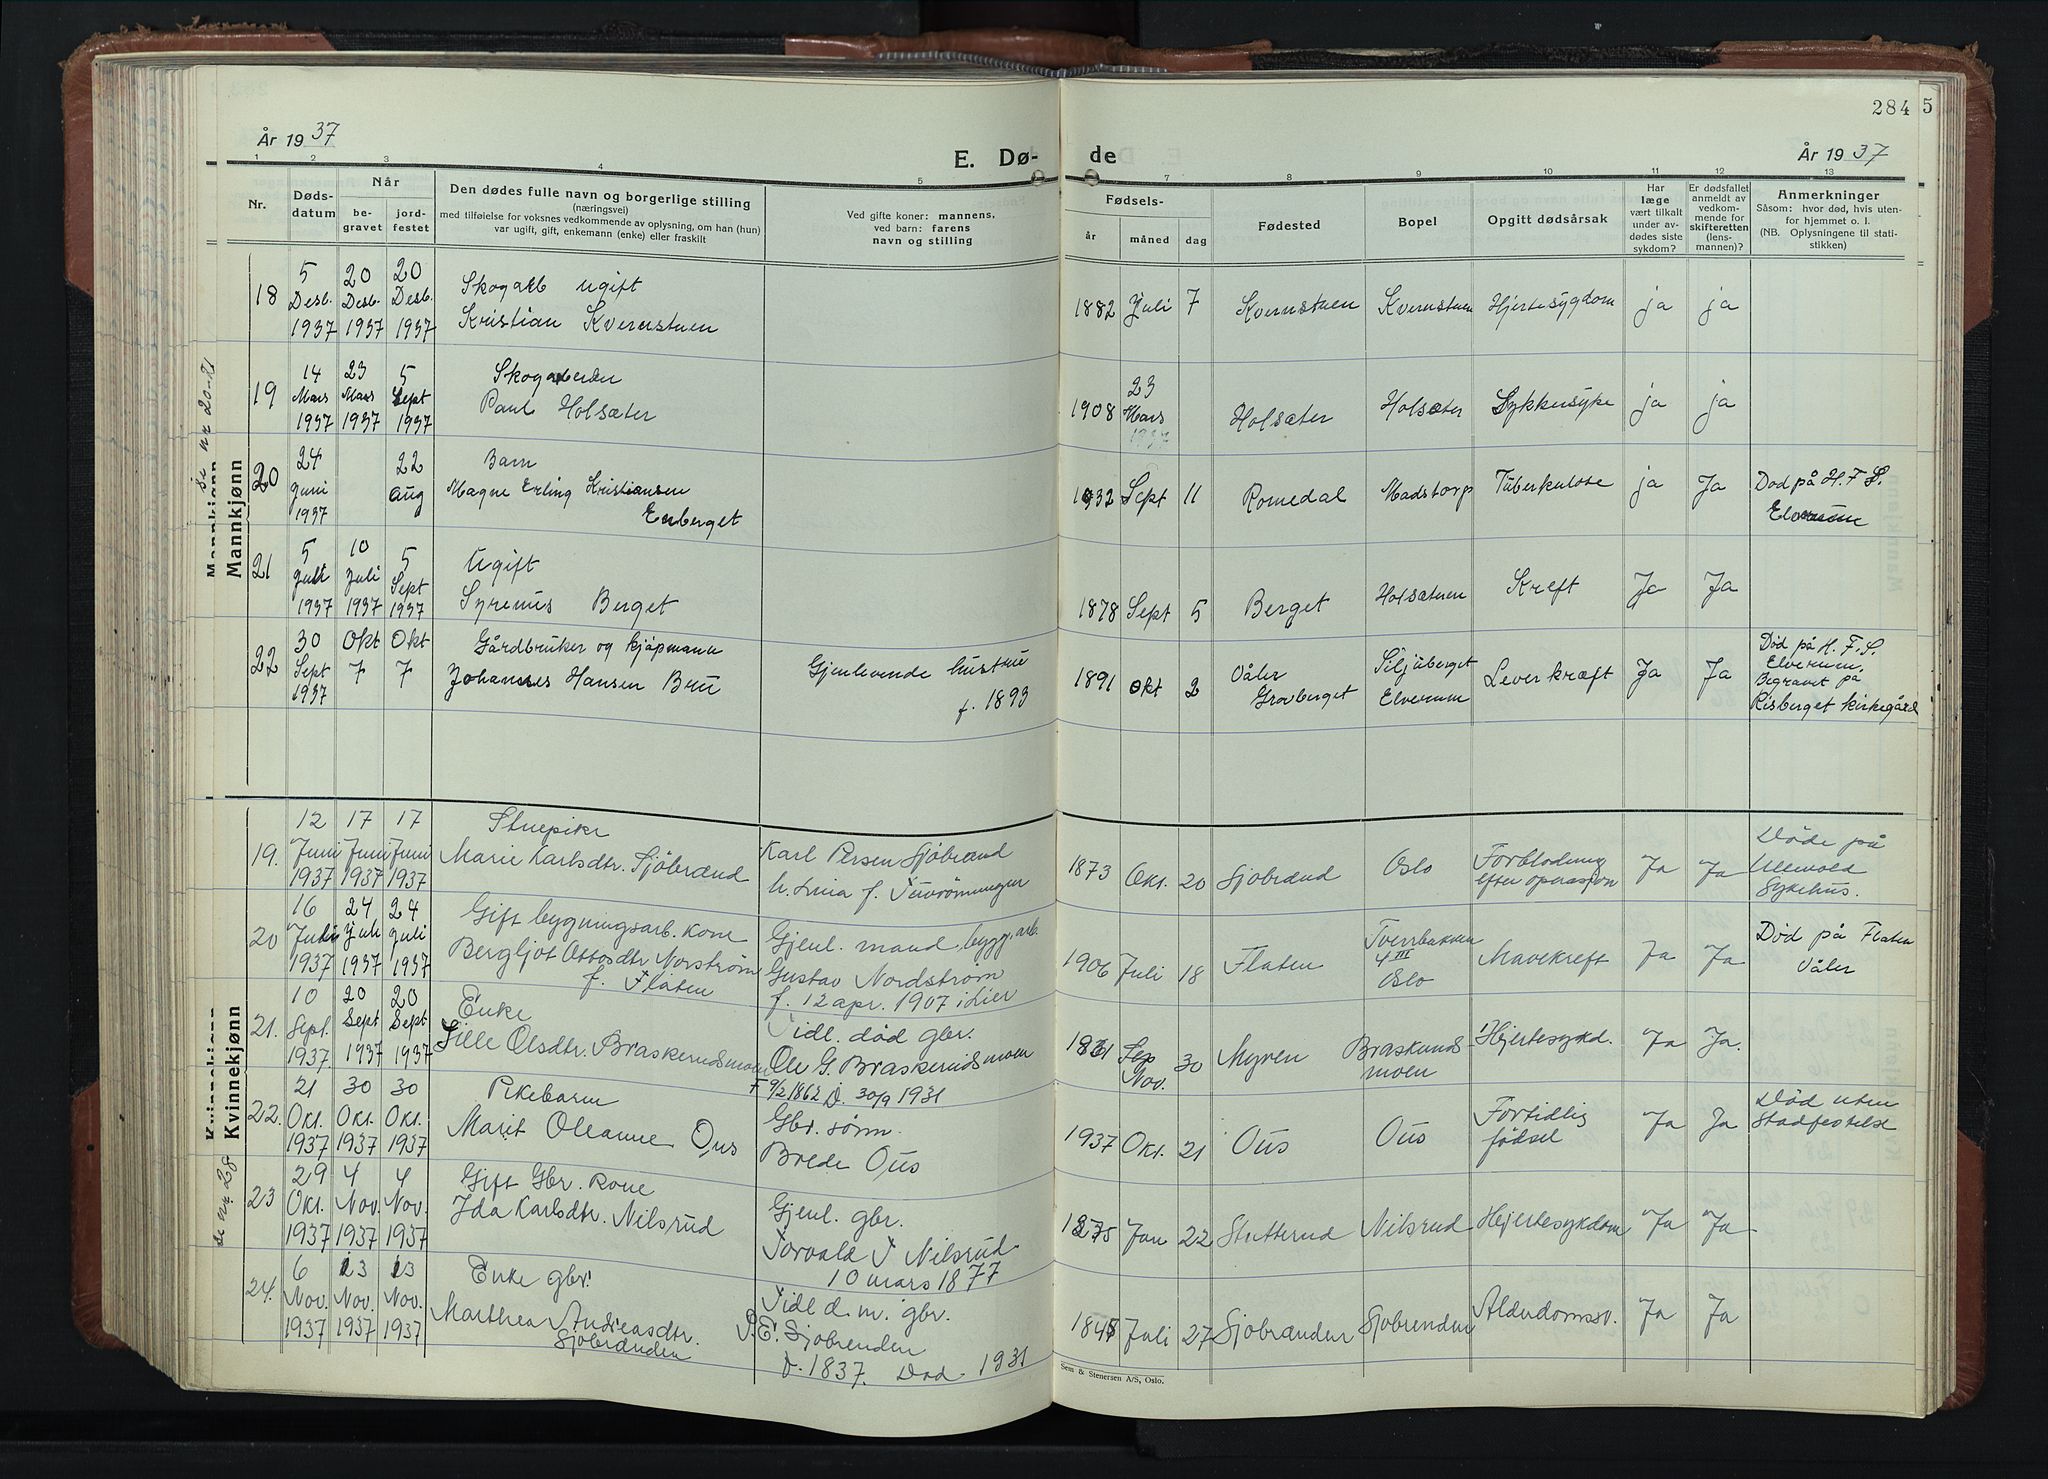 284 5
År 1937
E. Dø- de
År 1937
1 2 3 4 5 7 8 9 10 11 12 13
Nr.
Døds-datum
Når
be-gravet
jord-festet
Den dødes fulle navn og borgerlige stilling
(næringsvei)
med tilføielse for voksnes vedkommende av oplysning, om han (hun)
var ugift, gift, enkemann (enke) eller fraskilt
Ved gifte koner: mannens,
ved barn: farens
navn og stilling
Fødsels-
år måned dag
Fødested
Bopel
Opgitt dødsårsak
Har læge vært tilkalt under avdødes siste sykdom?
Er dødsfallet anmeldt av vedkommende for skifteretten (lensmannen)?
Anmerkninger
Såsom: hvor død, hvis utenfor hjemmet o. l.
(NB. Oplysningene til statistikken)
se nr 20-21
Mannkjønn
Mannkjønn
18 5 Desb. 1937 20 Desb. 1937 20 Desb. 1937 Skogarb ugift
Kristian Kvernstuen 1882 Juli 7 Kvernstuen Kvernstuen Hjertesygdom ja ja
19 14 Mars 1937 23 Mars 1937 5 Sept 1937 Skogarbeider
Paul Holsæter 1908 23 Mars 1937 Holsæter Holsæter Sykkersyke ja ja
20 24 Juni 1937 22 Aug Barn
Magne Erling Kristiansen
Enberget 1932 Sept 11 Romedal Madstorp Tuberkulose ja Ja Dod på H.F.S.
Elverum
21 5 Juli 1937 10 Juli 1937 5 Sept 1937 Ugift
Syrenus Berget 1878 Sept 5 Berget Holsæteren Kreft Ja Ja
22 30 Sept 1937 Okt 7 Okt 7 Gårdbruker og kjøpmann
Johannes Hansen Bru Gjenlevende hustru
f. 1893 1891 Okt 2 Våler Gravberget Siljuberget Elverum Leverkræft Ja Ja Død på H.F.S.
Elverum,
Begravet på
Risberget kirkegård
Kvinnekjønn
Kvinnekjønn
se nr. 28
19. 12 Juni 1937 17 Juni 1937 17 Juni 1937 Stuepike
Marie Karlsdtr. Sjöbrænd Karl Persen Sjöbrænd
h. Lina f. 1873 Okt. 20 Sjöbrænd Oslo Forblödning
efter operasjon Ja Ja Döde på
Ullevold
Sykehus.
20 16 Juli 1937 24 Juli 1937 24 Juli 1937 Gift bygningsarb. kone
Bergljot Ottosdtr Norström
f. Flaten Gjenl. mand bygg.arb.
Gustav Nordström
f. 12 apr. 1907 i Lier 1906 Juli 18 Flaten Tverrbakken
4 III
Oslo Mavekreft Ja Ja Död på Flaten
Våler
21. 10 Sept. 1937 20 Sept 1937 20 Sept 1937 Enke
Sille Olsdtr. Braskerudsmoen Tidl. död gbr.
Ole G. Braskerudsmoen
F 9/2 1862 D. 30/9 1931 Sep Nov. 30 Myren Braskerudsmoen Hjertesykd. Ja Ja.
22. 21 Okt. 1937 30 Okt. 1937 30 Okt. 1937 Pikebarn
Marit Oleanne Ous Gbr. sönn.
Brede Ous 1937 Okt. 21 Ous Ous Fortidlig
födsel Ja Ja Död uten
Stadfestelse
23 29 Okt. 1937 4 Nov. 1937 4 Nov. 1937 Gift Gbr. kone
Ida Karlsdtr. Nilsrud Gjenl. gbr.
Torvald T Nilsrud
10 mars 1877 1875 Jan 22 Stutterud Nilsrud Hjertesykdom Ja Ja
24. 6 Nov. 1937 13 Nov. 1937 13 Nov. 1937 Enke gbr.
Marthea Andreasdtr.
Sjöbrænden Tidl d. m. gbr.
P.E. Sjöbrenden
f. 1837. Död 1931 1845 Juli 27 Sjöbrænden Sjöbrenden Alderdomssv. Ja Ja
Sem & Stenersen A/S, Oslo.